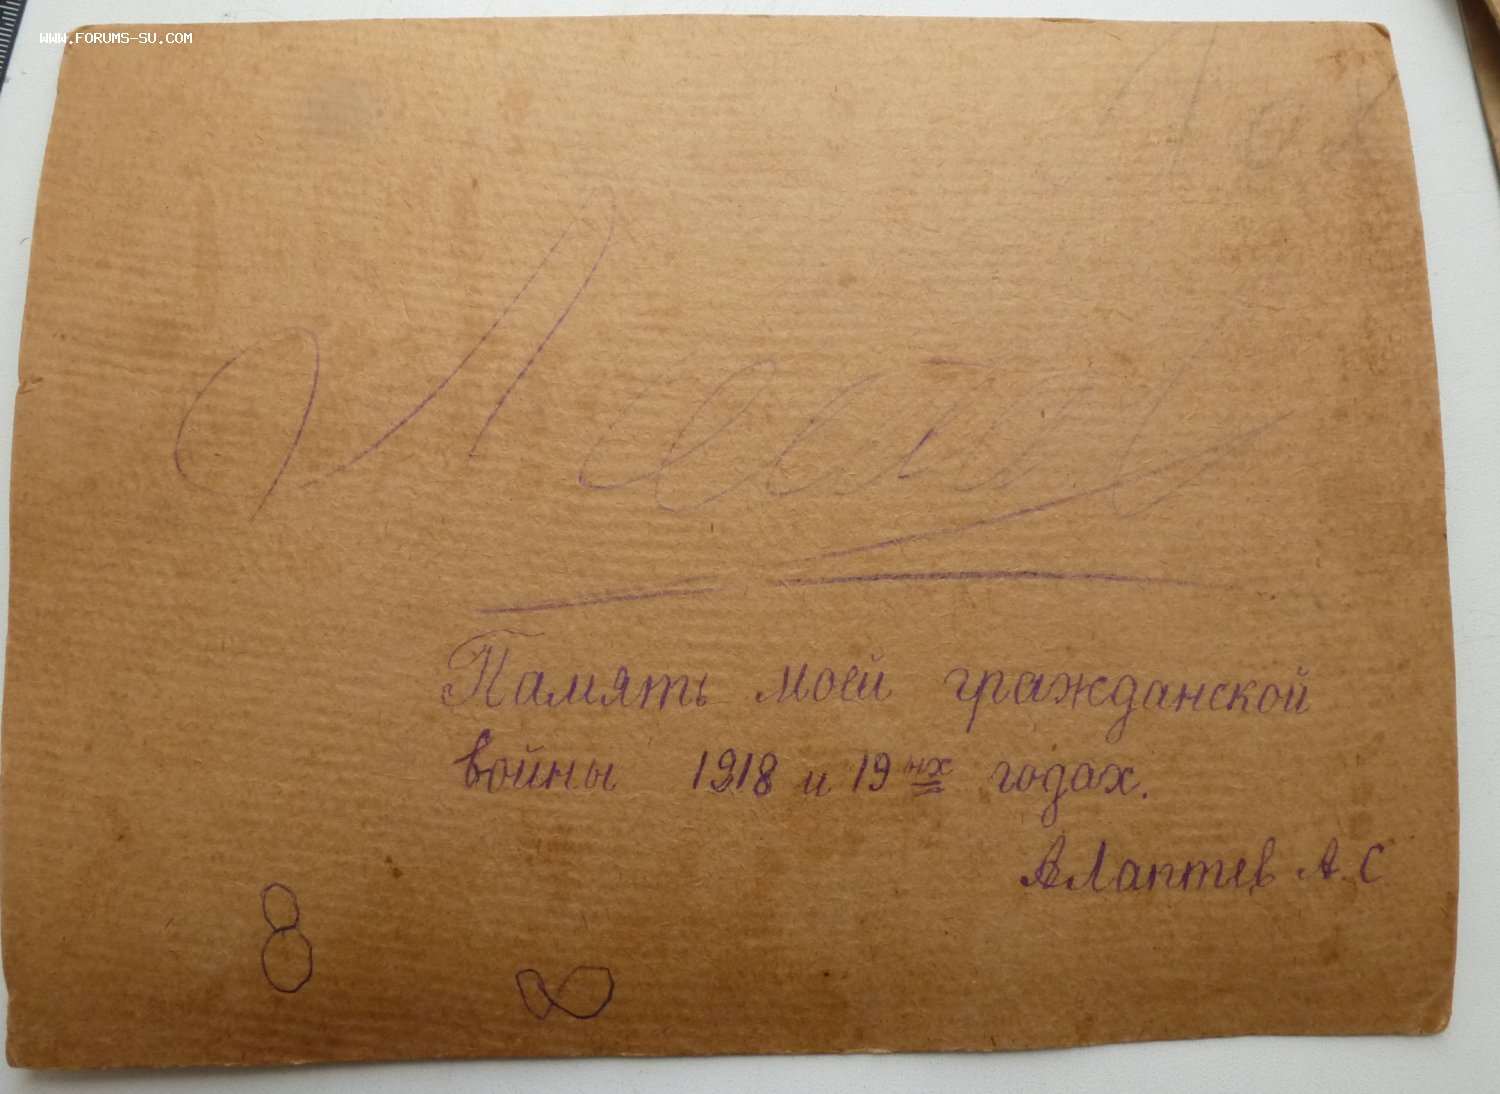 WWW.FORUMS-SU.COM
Память моей гражданской
войны 1918 и 19ых годах.
АЛаптев А.С
8
8